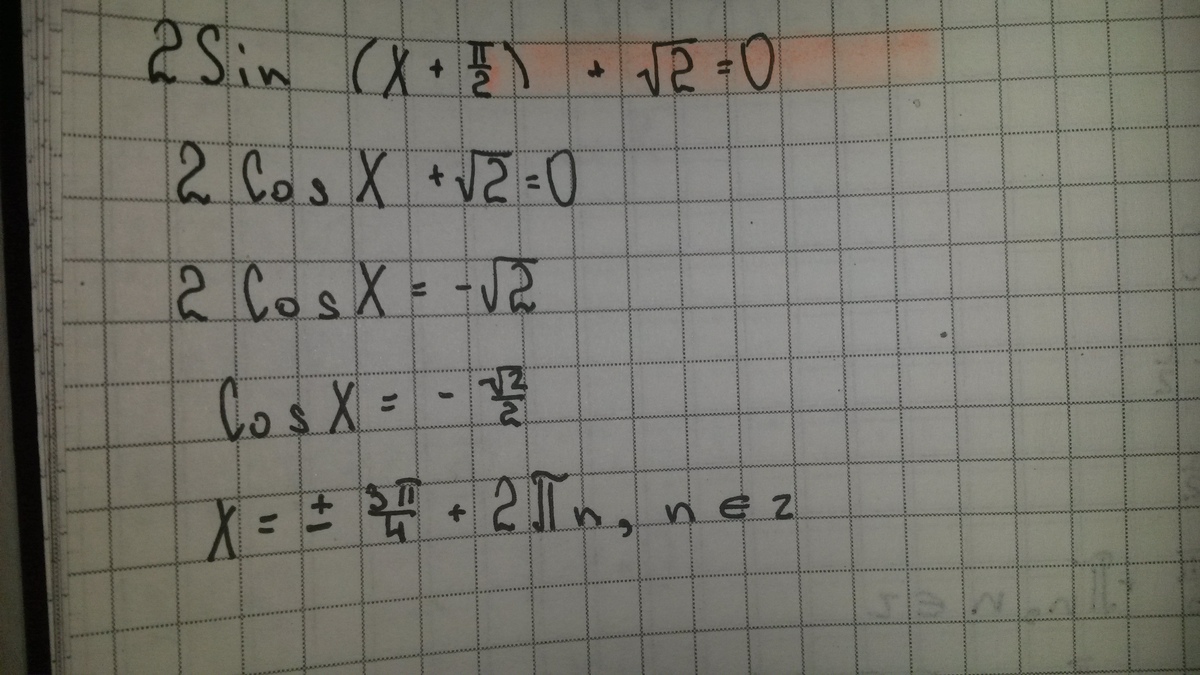 2Sin (X + π/2) + √2 = 0
2 Cos X + √2 = 0
2 Cos X = -√2
Cos X = - √2/2
X = ± 3π/4 + 2πn, n ∈ z